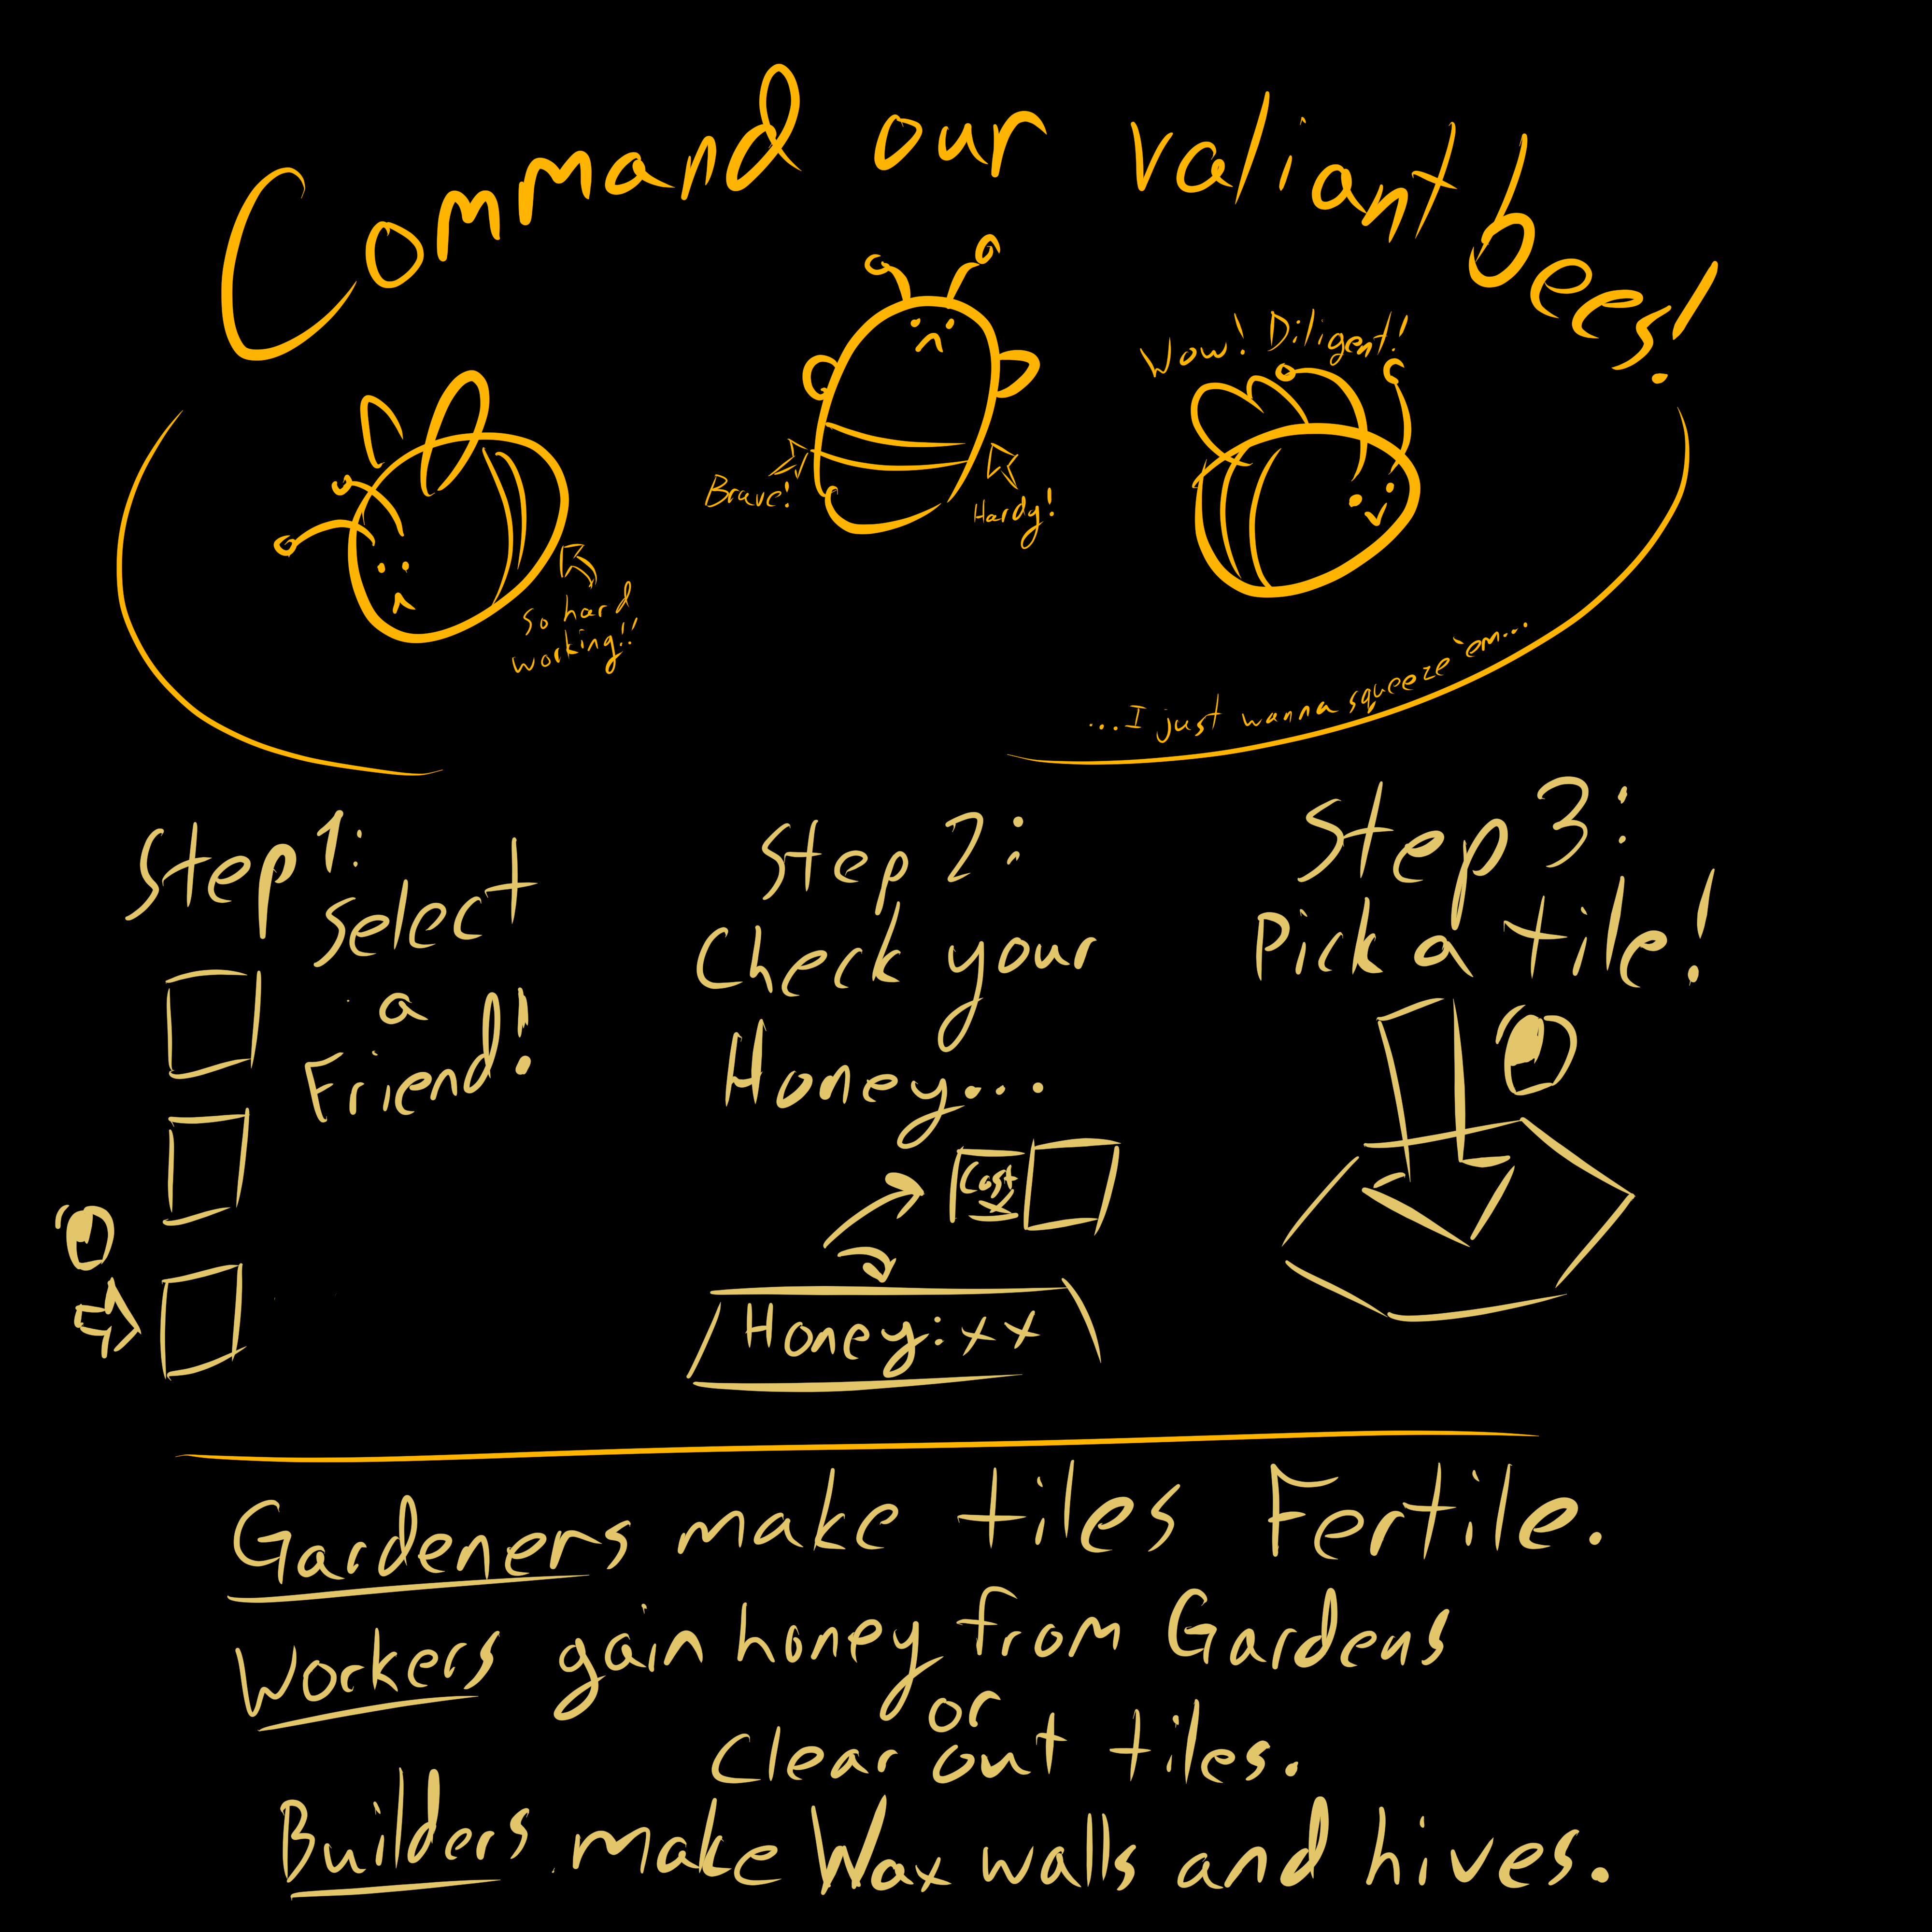 Command our valiant bees!
Wow! Diligent!
Brave!
Hardy!
So hard
working!!
...I just wanna squeeze 'em...
Step 1:
Select
a
Friend!
Step 2:
Check your
Honey...
Cost
Honey: xx
Step 3:
Pick a tile!
Gardeners make tiles Fertile.
Workers gain honey from Gardens
or
Clear out tiles.
Builders make Wax walls and hives.